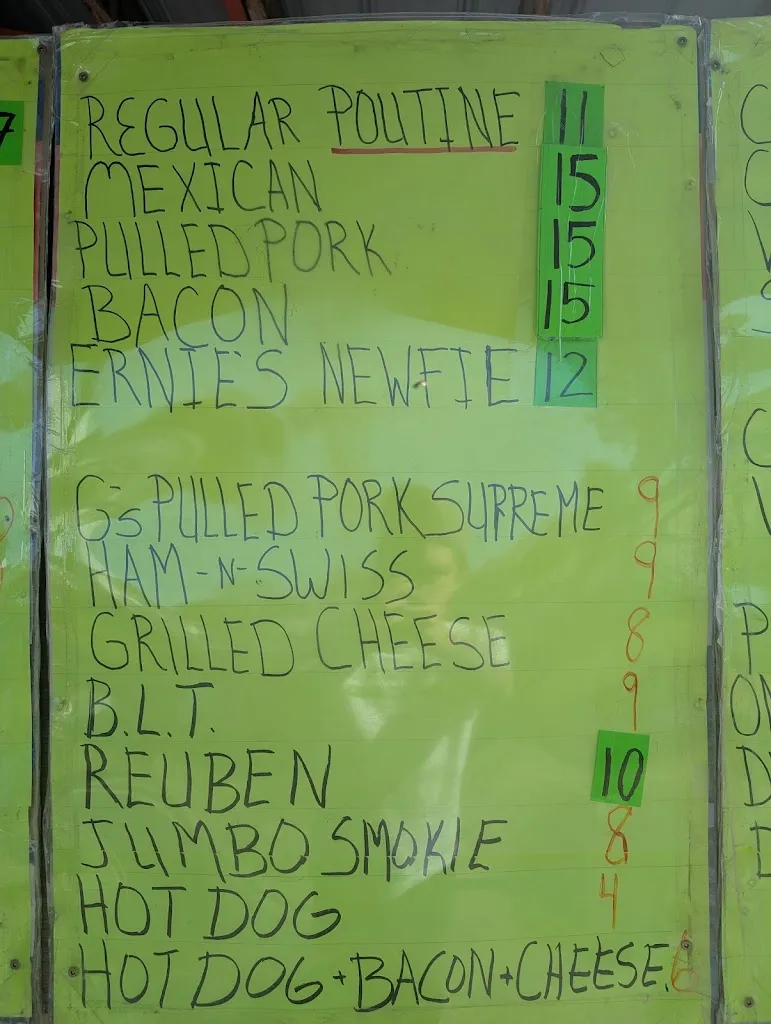 REGULAR POUTINE 11
MEXICAN 15
PULLED PORK 15
BACON 15
ERNIE'S NEWFIE 12
G's PULLED PORK SUPREME 9
HAM-N-SWISS 9
GRILLED CHEESE 8
B.L.T. 9
REUBEN 10
JUMBO SMOKIE 8
HOT DOG 4
HOT DOG+BACON+CHEESE. 6